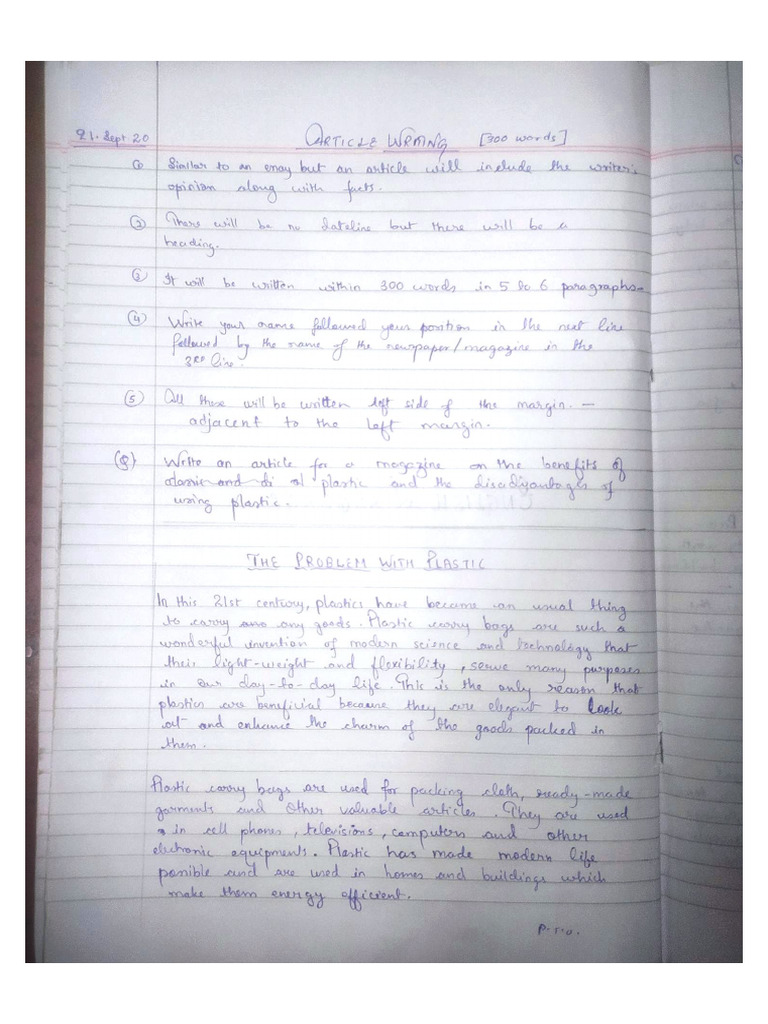 21. Sept 20 ARTICLE WRITING [300 words]
① Similar to an essay but an article will include the writer's
opinion along with facts.
② There will be no dateline but there will be a
heading.
③ It will be written within 300 words in 5 to 6 paragraphs-
④ Write your name followed your position in the next line
followed by the name of the newspaper/magazine in the
3RD line.
⑤ All these will be written left side of the margin. -
adjacent to the left margin.
(Q) Write an article for a magazine on the benefits of
and di plastic and the disadvantages of
using plastic.
THE PROBLEM WITH PLASTIC
In this 21st century, plastics have became an usual thing
to carry any goods. Plastic carry bags are such a
wonderful invention of modern science and technology that
their light-weight and flexibility, serve many purposes
in our day-to-day life. This is the only reason that
plastics are beneficial because they are elegant to look
at and enhance the charm of the goods packed in
them.
Plastic carry bags are used for packing cloth, ready-made
garments and other valuable articles. They are used
in cell phones, televisions, computers and other
electronic equipments. Plastic has made modern life
possible and are used in homes and buildings which
make them energy efficient.
P.T.O.